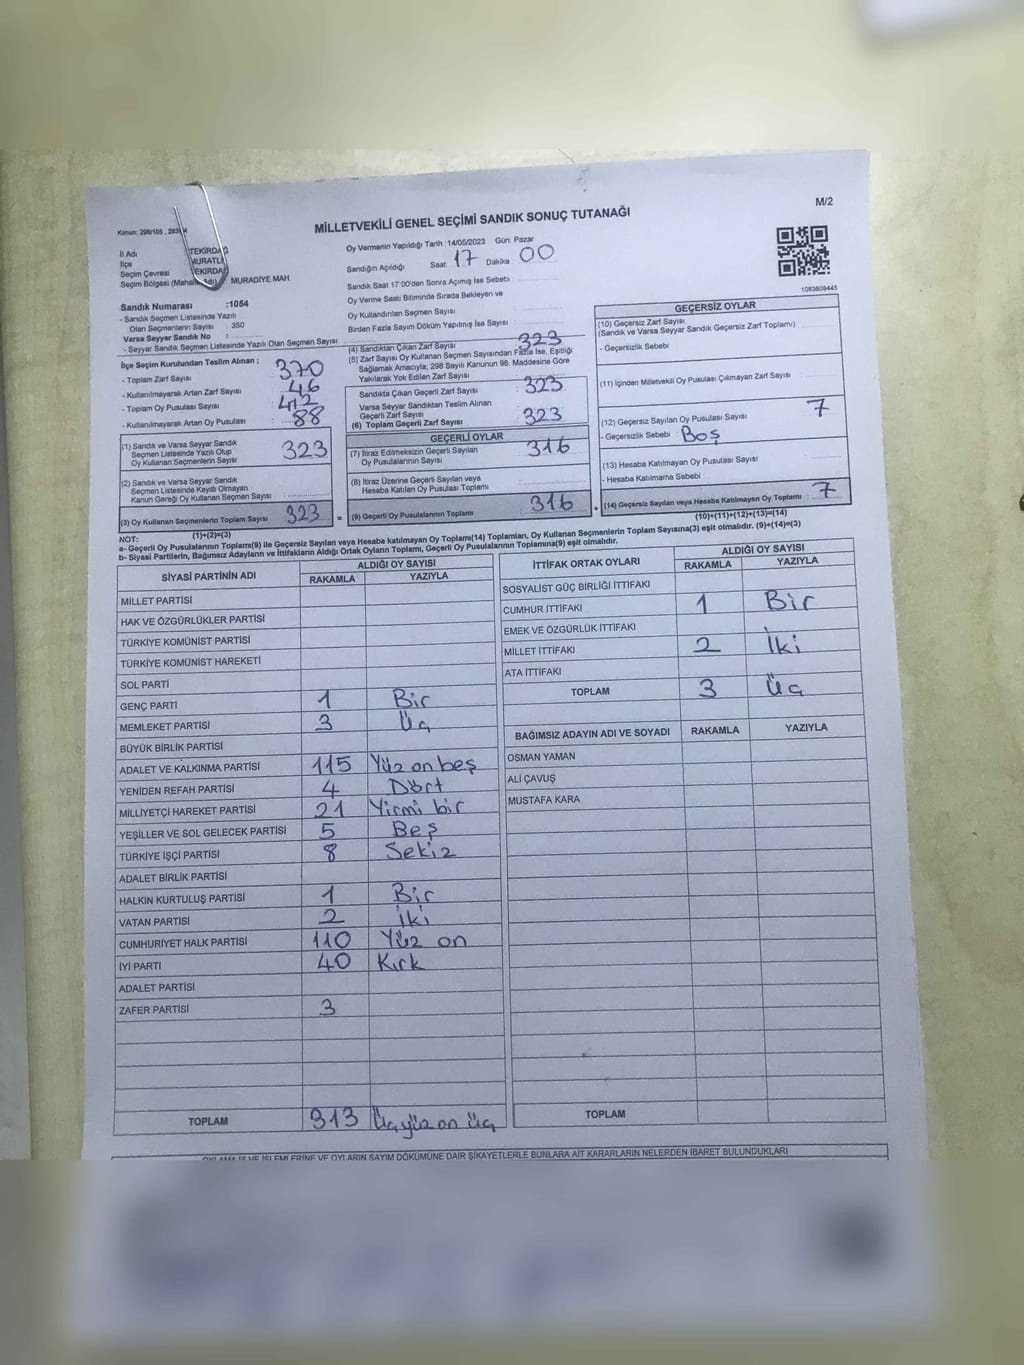 M/2
MİLLETVEKİLİ GENEL SEÇİMİ SANDIK SONUÇ TUTANAĞI
İl Adı : TEKİRDAĞ
İlçe : MURATLI
Seçim Çevresi : TEKİRDAĞ
Seçim Bölgesi (Mahalle Adı) : MURADİYE MAH.
Sandık Numarası :1054
- Sandık Seçmen Listesinde Yazılı
Olan Seçmenlerin Sayısı : 350
Varsa Seyyar Sandık No :
- Seyyar Sandık Seçmen Listesinde Yazılı Olan Seçmen Sayısı:
Oy Vermenin Yapıldığı Tarih :14/05/2023 Gün: Pazar
Sandığın Açıldığı Saat: 17 Dakika: 00
Sandık Saat 17:00'den Sonra Açımış İse Sebebi
Oy Verme Saati Bitiminde Sırada Bekleyen ve
Oy Kullandırılan Seçmen Sayısı
Birden Fazla Sayım Döküm Yapılmış İse Sayısı
1083609445
İlçe Seçim Kurulundan Teslim Alınan :
- Toplam Zarf Sayısı : 370
- Kullanılmayarak Artan Zarf Sayısı : 46
- Toplam Oy Pusulası Sayısı : 412
- Kullanılmayarak Artan Oy Pusulası : 88
(1) Sandık ve Varsa Seyyar Sandık
Seçmen Listesinde Yazılı Olup
Oy Kullanan Seçmenlerin Sayısı 323
(2) Sandık ve Varsa Seyyar Sandık
Seçmen Listesinde Kaydı Olmayan
Kanun Gereği Oy Kullanan Seçmen Sayısı
(3) Oy Kullanan Seçmenlerin Toplam Sayısı 323 =
(1)+(2)=(3)
(4) Sandıktan Çıkan Zarf Sayısı 323
(5) Zarf Sayısı Oy Kullanan Seçmen Sayısından Fazla İse, Eşitliği
Sağlamak Amacıyla, 298 Sayılı Kanunun 98. Maddesine Göre
Yakılarak Yok Edilen Zarf Sayısı
Sandıkta Çıkan Geçerli Zarf Sayısı : 323
Varsa Seyyar Sandıktan Teslim Alınan
Geçerli Zarf Sayısı
(6) Toplam Geçerli Zarf Sayısı 323
GEÇERLİ OYLAR
(7) İtiraz Edilmeksizin Geçerli Sayılan
Oy Pusulalarının Sayısı 316
(8) İtiraz Üzerine Geçerli Sayılan veya
Hesaba Katılan Oy Pusulası Toplamı
(9) Geçerli Oy Pusulalarının Toplamı 316 +
GEÇERSİZ OYLAR
(10) Geçersiz Zarf Sayısı
(Sandık ve Varsa Seyyar Sandık Geçersiz Zarf Toplamı)
- Geçersizlik Sebebi
(11) İçinden Milletvekili Oy Pusulası Çıkmayan Zarf Sayısı
(12) Geçersiz Sayılan Oy Pusulası Sayısı 7
- Geçersizlik Sebebi : Boş
(13) Hesaba Katılmayan Oy Pusulası Sayısı
- Hesaba Katılmama Sebebi
(14) Geçersiz Sayılan veya Hesaba Katılmayan Oy Toplamı : 7
(10)+(11)+(12)+(13)=(14)
NOT:
a- Geçerli Oy Pusulalarının Toplamı(9) ile Geçersiz Sayılan veya Hesaba katılmayan Oy Toplamı(14) Toplamları, Oy Kullanan Seçmenlerin Toplam Sayısına(3) eşit olmalıdır. (9)+(14)=(3)
b- Siyasi Partilerin, Bağımsız Adayların ve İttifakların Aldığı Ortak Oyların Toplamı, Geçerli Oy Pusulalarının Toplamına(9) eşit olmalıdır.
SİYASİ PARTİNİN ADI ALDIĞI OY SAYISI
RAKAMLA YAZIYLA
MİLLET PARTİSİ
HAK VE ÖZGÜRLÜKLER PARTİSİ
TÜRKİYE KOMÜNİST PARTİSİ
TÜRKİYE KOMÜNİST HAREKETİ
SOL PARTİ
GENÇ PARTİ 1 Bir
MEMLEKET PARTİSİ 3 Üç
BÜYÜK BİRLİK PARTİSİ
ADALET VE KALKINMA PARTİSİ 115 Yüz on beş
YENİDEN REFAH PARTİSİ 4 Dört
MİLLİYETÇİ HAREKET PARTİSİ 21 Yirmi bir
YEŞİLLER VE SOL GELECEK PARTİSİ 5 Beş
TÜRKİYE İŞÇİ PARTİSİ 8 Sekiz
ADALET BİRLİK PARTİSİ
HALKIN KURTULUŞ PARTİSİ 1 Bir
VATAN PARTİSİ 2 İki
CUMHURİYET HALK PARTİSİ 110 Yüz on
İYİ PARTİ 40 Kırk
ADALET PARTİSİ
ZAFER PARTİSİ 3
TOPLAM 313 Üçyüz on üç
İTTİFAK ORTAK OYLARI ALDIĞI OY SAYISI
RAKAMLA YAZIYLA
SOSYALİST GÜÇ BİRLİĞİ İTTİFAKI
CUMHUR İTTİFAKI 1 Bir
EMEK VE ÖZGÜRLÜK İTTİFAKI
MİLLET İTTİFAKI 2 İki
ATA İTTİFAKI
TOPLAM 3 Üç
BAĞIMSIZ ADAYIN ADI VE SOYADI RAKAMLA YAZIYLA
OSMAN YAMAN
ALİ ÇAVUŞ
MUSTAFA KARA
TOPLAM